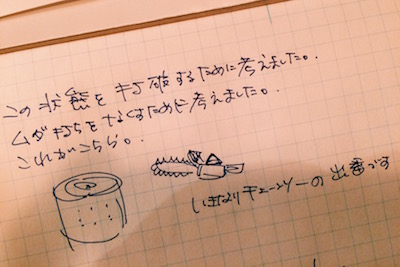 この状態を打破するために考えました。
ムダ打ちをなくすために考えました。
これがこちら。
いきなりチェーンソーの出番です